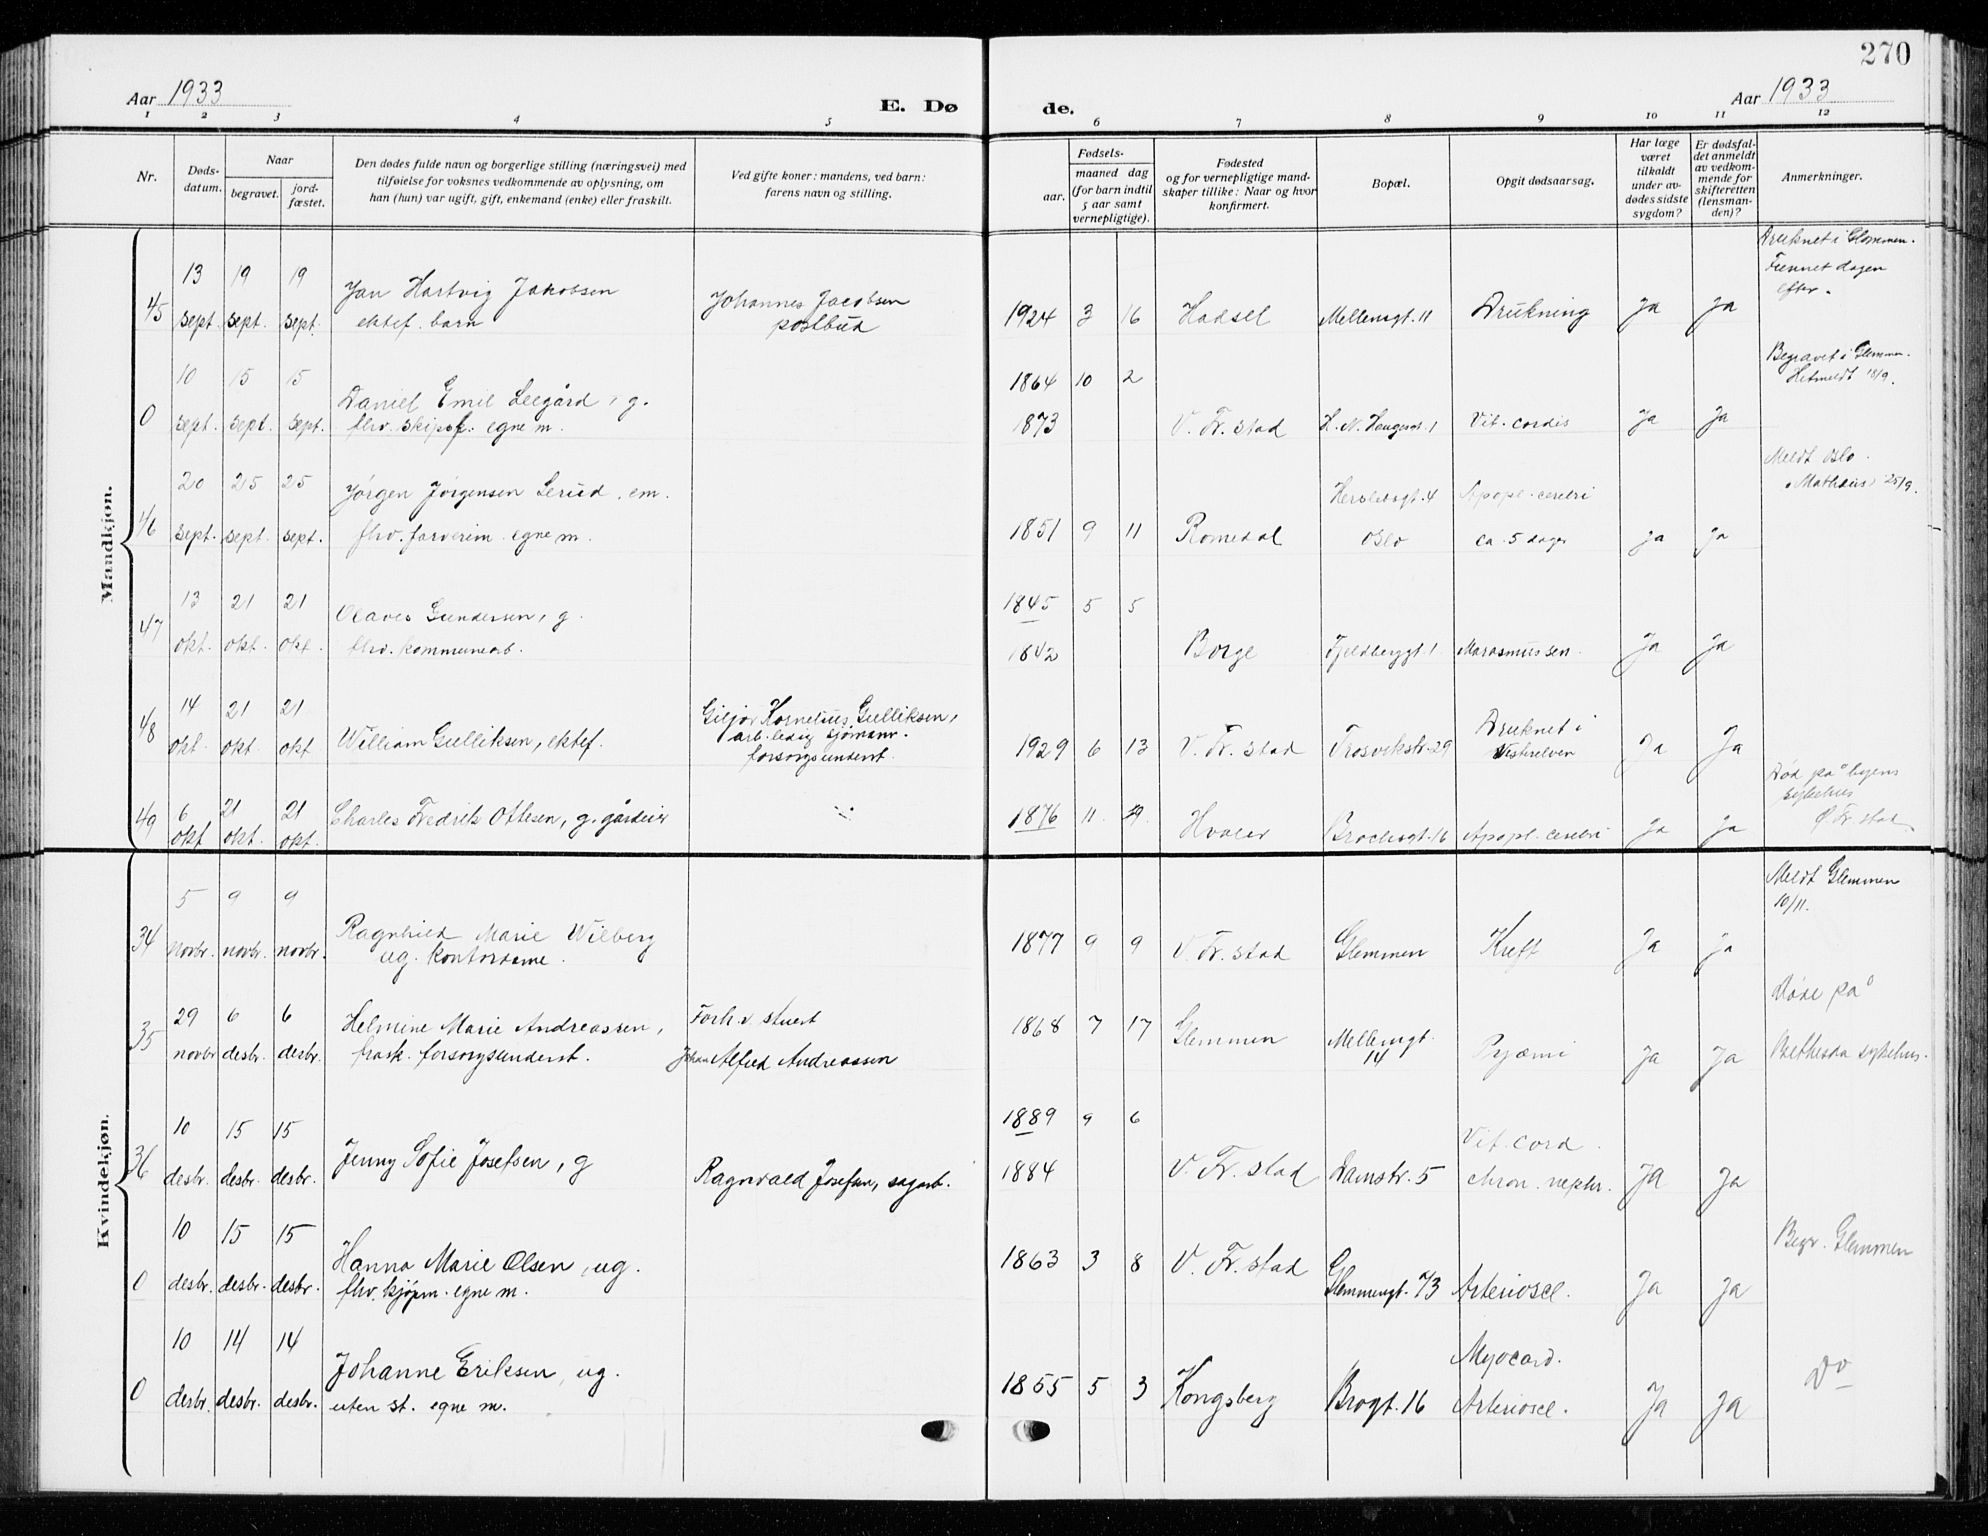 270
Aar 1933
E. Dø
de.
Aar 1933
1 2 3 4 5 6 7 8 9 10 11 12
Nr.
Døds-
datum.
Naar
begravet.
jord-
fæstet.
Den dødes fulde navn og borgerlige stilling (næringsvei) med
tilføielse for voksnes vedkommende av oplysning, om
han (hun) var ugift, gift, enkemand (enke) eller fraskilt.
Ved gifte koner: mandens, ved barn:
farens navn og stilling.
Fødsels-
aar.
maaned dag
(for barn indtil
5 aar samt
vernepligtige).
Fødested
og for vernepligtige mand-
skaper tillike: Naar og hvor
konfirmert.
Bopæl.
Opgit dødsaarsag.
Har læge
været
tilkaldt
under av-
dødes sidste
sygdom?
Er dødsfal-
det anmeldt
av vedkom-
mende for
skifteretten
(lensman-
den)?
Anmerkninger.
Mandkjøn.
45
13
sept.
19
sept.
19
sept.
Jan Hartvig Jakobsen
ektef. barn
Johannes Jacobsen
postbud
1924 3 16
Hadsel
Mellemgt. 11
Drukning
Ja
Ja
Druknet i Glommen.
Funnet dagen
efter.
0
10
sept.
15
sept.
15
sept.
Daniel Emil Leegård, g.
fhv. skipsf. egne m.
1864 10 2
1873
V. Fr. stad
H. N. Haugesgt. 1
Vit. cordis
Ja
Ja
Begravet i Glemmen.
Hitmeldt 18/9.
46
20
sept.
25
sept.
25
sept.
Jørgen Jørgensen Lerud, em.
fhv. farverim. egne m.
1851 9 11
Romedal
Herslebsgt. 4
Oslo
Apopl. cerebri
ca. 5 dager
Ja
Ja
Meldt Oslo.
Mathæus 25/9.
47
13
okt.
21
okt.
21
okt.
Olaves Gundersen, g.
fhv. kommunearb.
1845 5 5
1842
Borge
Fjeldberggt. 1
Marasmus sen.
Ja
Ja
48
14
okt.
21
okt.
21
okt.
William Gulliksen, ektef.
Giljar Kornelius Gulliksen,
arb.ledig sjømann.
forsorgsunderst.
1929 6 13
V. Fr. stad
Trosvikstr. 29
Druknet i
Vesterelven
Ja
Ja
49
6
okt.
21
okt.
21
okt.
Charles Fredrik Ottesen, g. gårdeier
1876 11
Hvaler
Brochsgt. 16
Apopl. cerebri
Ja
Ja
Død på byens
sykehus
Ø. Fr. stad
Kvindekjøn.
34
5
novbr.
9
novbr.
9
novbr.
Ragnhild Marie Wilberg
ug. kontordame.
1877 9 9
V. Fr. stad
Glemmen
Kreft
Ja
Ja
Meldt Glemmen
10/11.
35
29
novbr
6
desbr.
6
desbr.
Helmine Marie Andreassen,
frask. forsorgsunderst.
Forh.v. stuert
Johan Alfred Andreassen
1868 7 17
Glemmen
Mellemgt.
14
Pyæmi
Ja
Ja
Døde på
Bethesda sykehus.
36
10
desbr.
15
desbr.
15
desbr.
Jenny Sofie Josefsen, g
Ragnvald Josefsen, sagarb.
1889 9 6
1884
V. Fr. stad
Damstr. 5
Vit. cord.
chron. nephr.
Ja
Ja
0
10
desbr.
15
desbr.
15
desbr.
Hanna Marie Olsen, ug.
fhv. kjøpm. egne m.
1863 3 8
V. Fr. stad
Glemmengt. 73
Arterioscl.
Ja
Ja
Begr. Glemmen
0
10
desbr.
14
desbr.
14
desbr.
Johanne Eriksen, ug.
uten st. egne m.
1855 5 3
Kongsberg
Brogt. 16
Myocard.
Arterioscl.
Ja
Ja
Do